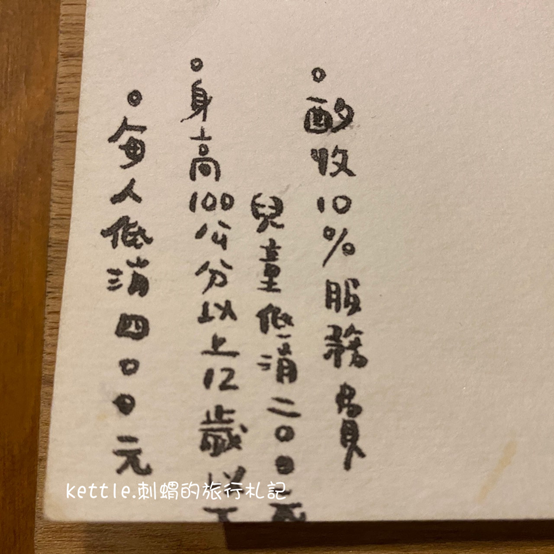 。每人低消四00元
。身高100公分以上12歲以下
兒童低消二00
。酌收10%服務費
kettle.刺蝟的旅行札記